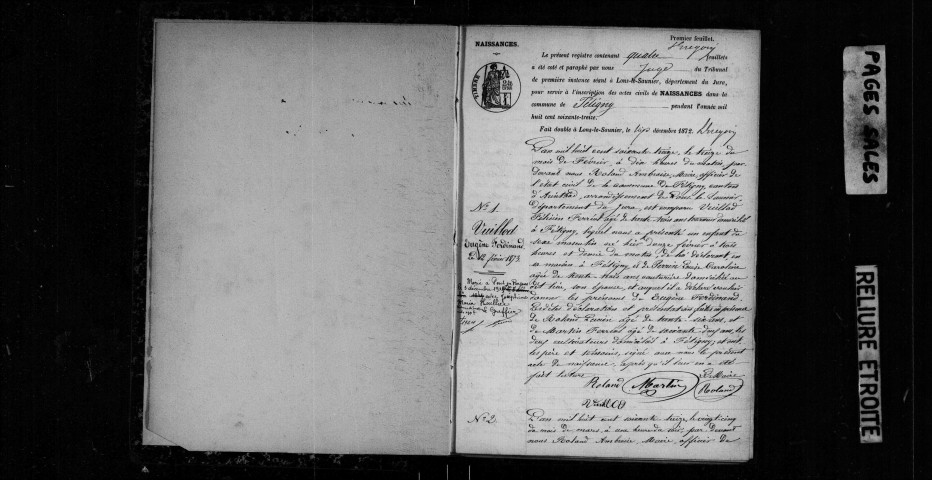 Premier feuillet.
NAISSANCES.
Le présent registre contenant quatre feuillets
a été coté et paraphé par nous Juge du Tribunal
de première instance séant à Lons-le-Saunier, département du Jura,
pour servir à l'inscription des actes civils de NAISSANCES dans la
commune de Fétigny pendant l'année mil
huit cent soixante-treize.
Fait double à Lons-le-Saunier, le décembre 1872.
TIMBRE
N° 1.
Vuillod
Eugène Ferdinand
12 février 1873
L'an mil huit cent soixante treize, le treize du
mois de Février, à dix heures du matin, par
devant nous Roland Ambroise, Maire, officier de
l'état civil de la commune de Fétigny, canton
d'Arinthod, arrondissement de Lons-le-Saunier,
département du Jura, est comparu Vuillod
âgé de trente trois ans domicilié
à Fétigny, lequel nous a présenté un enfant du
sexe masculin né hier douze février à trois
heures et demie du matin, de lui déclarant, en
sa maison à Fétigny, et de Perrin Louise Caroline
âgée de trente trois ans domiciliée au
dit lieu, son épouse, et auquel il a déclaré vouloir
donner les prénoms de Eugène Ferdinand.
Lesdites déclaration et présentation faites en présence
de Roland âgé de trente six ans, et
de Martin âgé de soixante ans, les
deux cultivateurs domiciliés à Fétigny; et ont
les père et témoins, signé avec nous le présent
acte de naissance, après qu'il leur en a été
fait lecture.
Roland Martin Le Maire
Roland
Vuillod
N° 2.
L'an mil huit cent soixante treize, le vingt cinq
du mois de mars, à une heure du soir, par devant
nous Roland Ambroise, Maire, officier de
PAGES SALES
RELIURE ETROITE